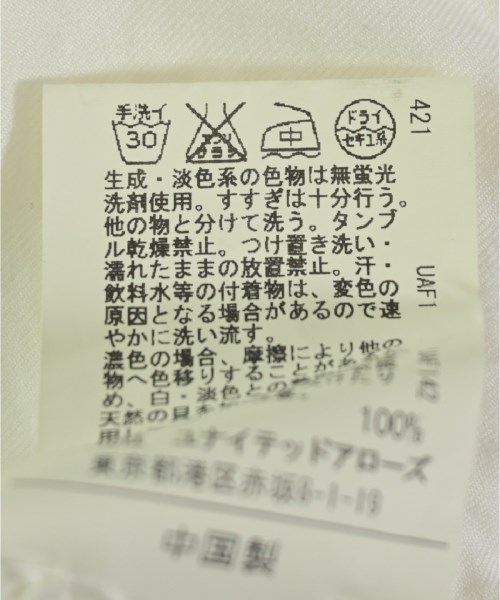 手洗イ
30
エンソ
サラシ
中
ドライ
セキユ系
421
生成・淡色系の色物は無蛍光
洗剤使用。すすぎは十分行う。
他の物と分けて洗う。タンブ
ル乾燥禁止。つけ置き洗い・
濡れたままの放置禁止。汗・
飲料水等の付着物は、変色の
原因となる場合があるので速
やかに洗い流す。
濃色の場合、摩擦により他の
物へ色移りすることがある
め、白・淡色との
天然の貝を
用
UAF1
100%
ユナイテッドアローズ
東京都港区赤坂8-1-19
中国製